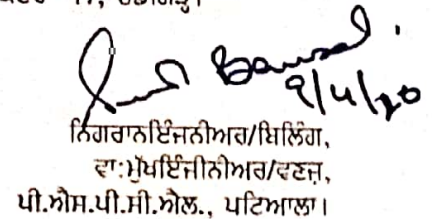 Bansal
9/4/20
ਨਿਗਰਾਨਇੰਜਨੀਅਰ/ਬਿਲਿੰਗ,
ਵਾ:ਮੁੱਖਇੰਜੀਨੀਅਰ/ਵਣਜ,
ਪੀ.ਐਸ.ਪੀ.ਸੀ.ਐਲ., ਪਟਿਆਲਾ।